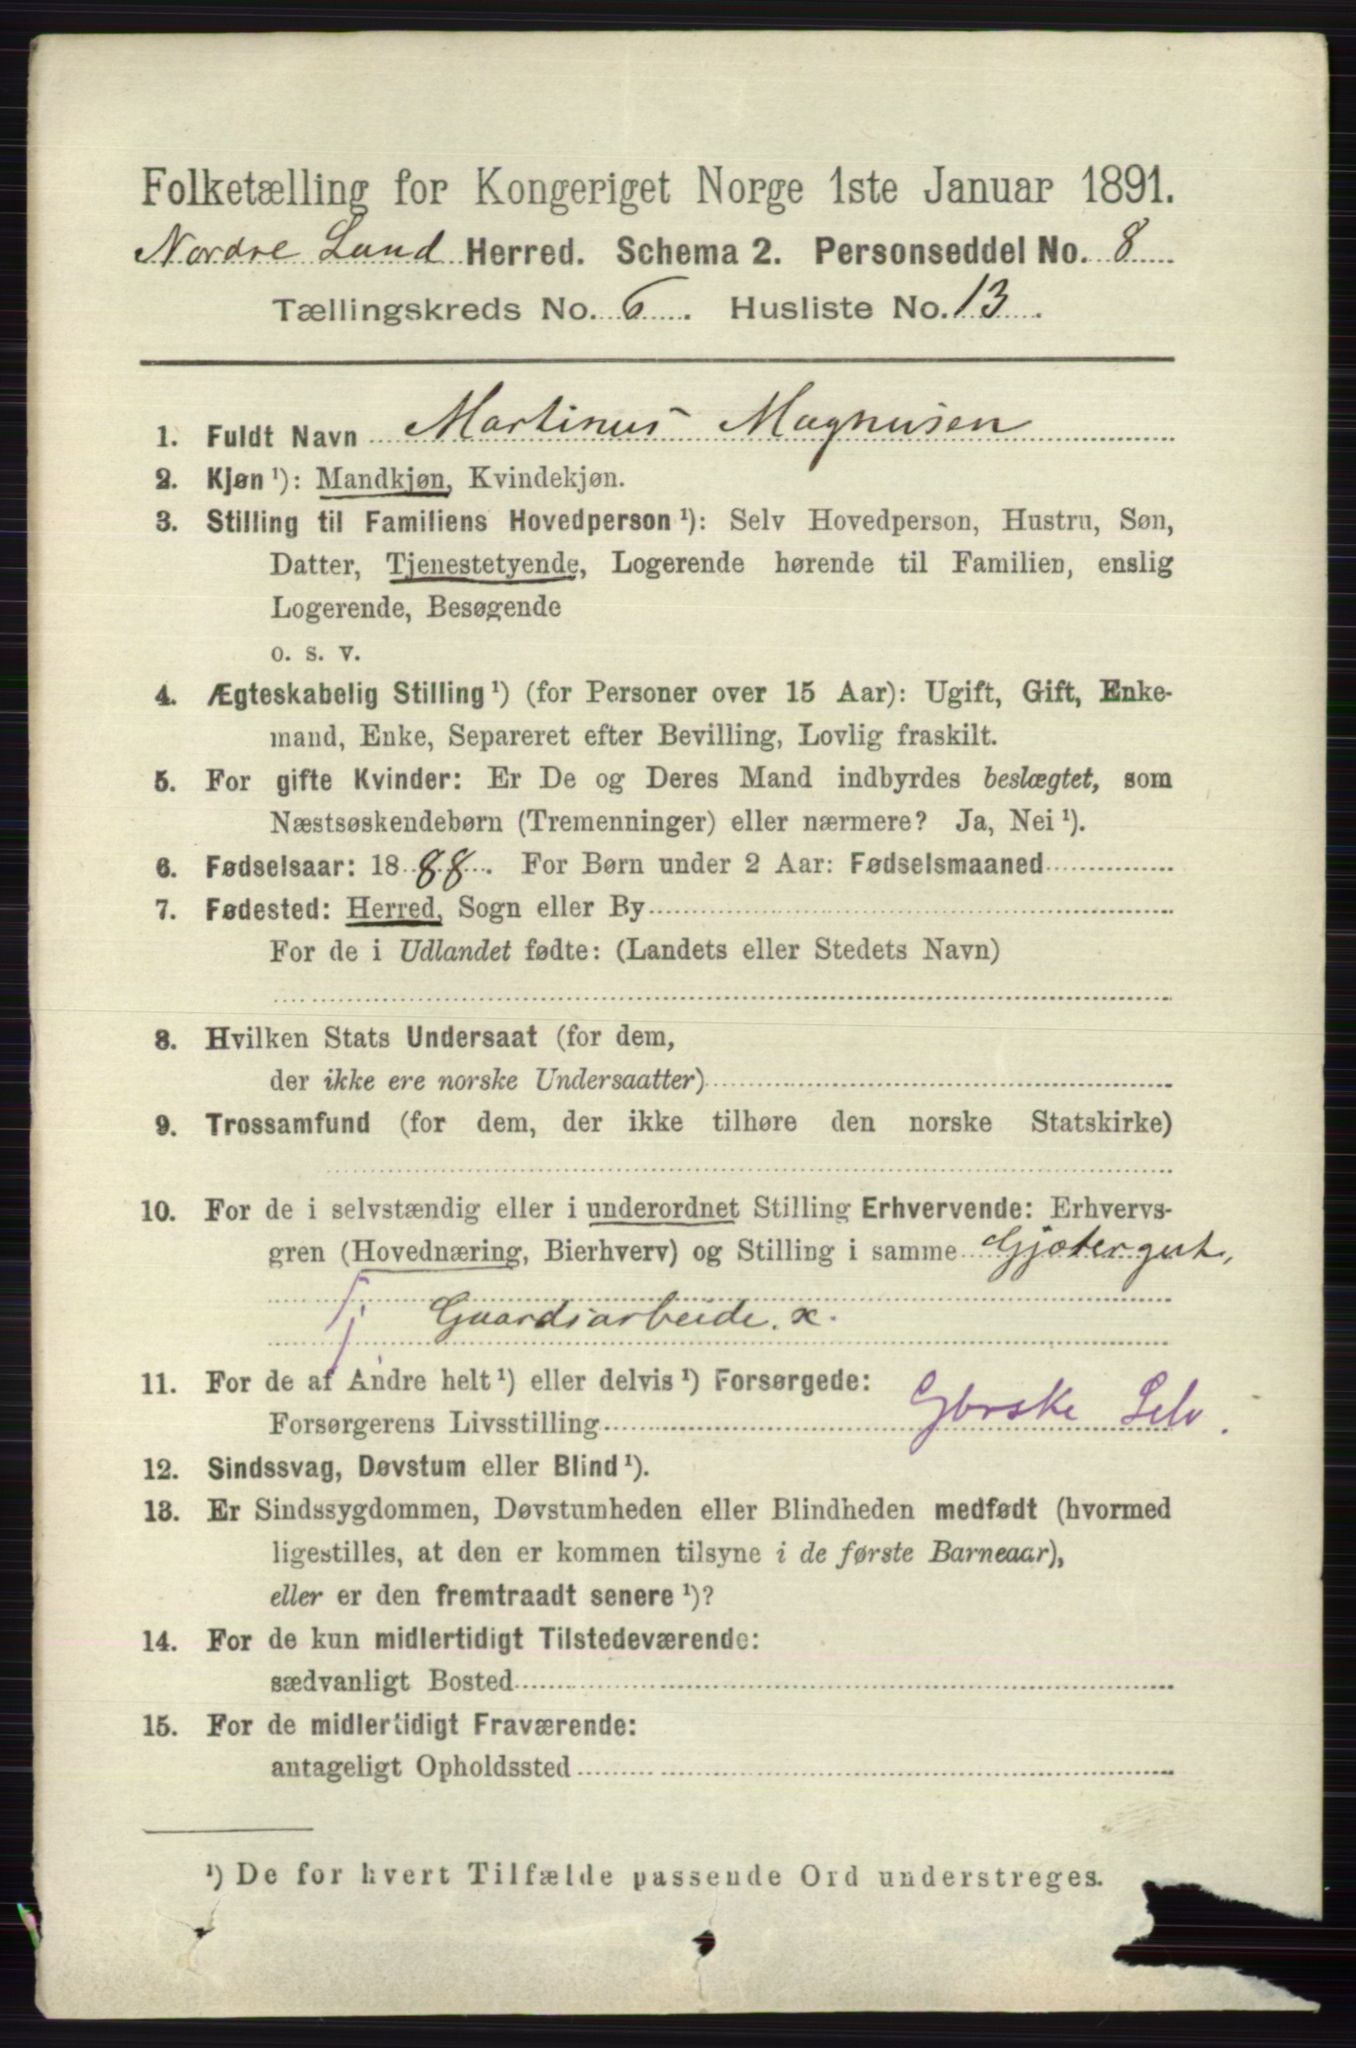 Folketælling for Kongeriget Norge 1ste Januar 1891.
Nordre Land Herred. Schema 2. Personseddel No. 8
Tællingskreds No. 6. Husliste No. 13.
1. Fuldt Navn Martinus Magnusen
2. Kjøn ¹): Mandkjøn, Kvindekjøn.
3. Stilling til Familiens Hovedperson ¹): Selv Hovedperson, Hustru, Søn,
Datter, Tjenestetyende, Logerende hørende til Familien, enslig
Logerende, Besøgende
o. s. v.
4. Ægteskabelig Stilling ¹) (for Personer over 15 Aar): Ugift, Gift, Enke-
mand, Enke, Separeret efter Bevilling, Lovlig fraskilt.
5. For gifte Kvinder: Er De og Deres Mand indbyrdes beslægtet, som
Næstsøskendebørn (Tremenninger) eller nærmere? Ja, Nei ¹).
6. Fødselsaar: 1888. For Børn under 2 Aar: Fødselsmaaned
7. Fødested: Herred, Sogn eller By
For de i Udlandet fødte: (Landets eller Stedets Navn)
8. Hvilken Stats Undersaat (for dem,
der ikke ere norske Undersaatter)
9. Trossamfund (for dem, der ikke tilhøre den norske Statskirke)
10. For de i selvstændig eller i underordnet Stilling Erhvervende: Erhvervs-
gren (Hovednæring, Bierhverv) og Stilling i samme Gjætergut,
Gaardsarbeide. x.
11. For de af Andre helt ¹) eller delvis ¹) Forsørgede:
Forsørgerens Livsstilling Selv.
12. Sindssvag, Døvstum eller Blind ¹).
13. Er Sindssygdommen, Døvstumheden eller Blindheden medfødt (hvormed
ligestilles, at den er kommen tilsyne i de første Barneaar),
eller er den fremtraadt senere ¹)?
14. For de kun midlertidigt Tilstedeværende:
sædvanligt Bosted
15. For de midlertidigt Fraværende:
antageligt Opholdssted
¹) De for hvert Tilfælde passende Ord understreges.